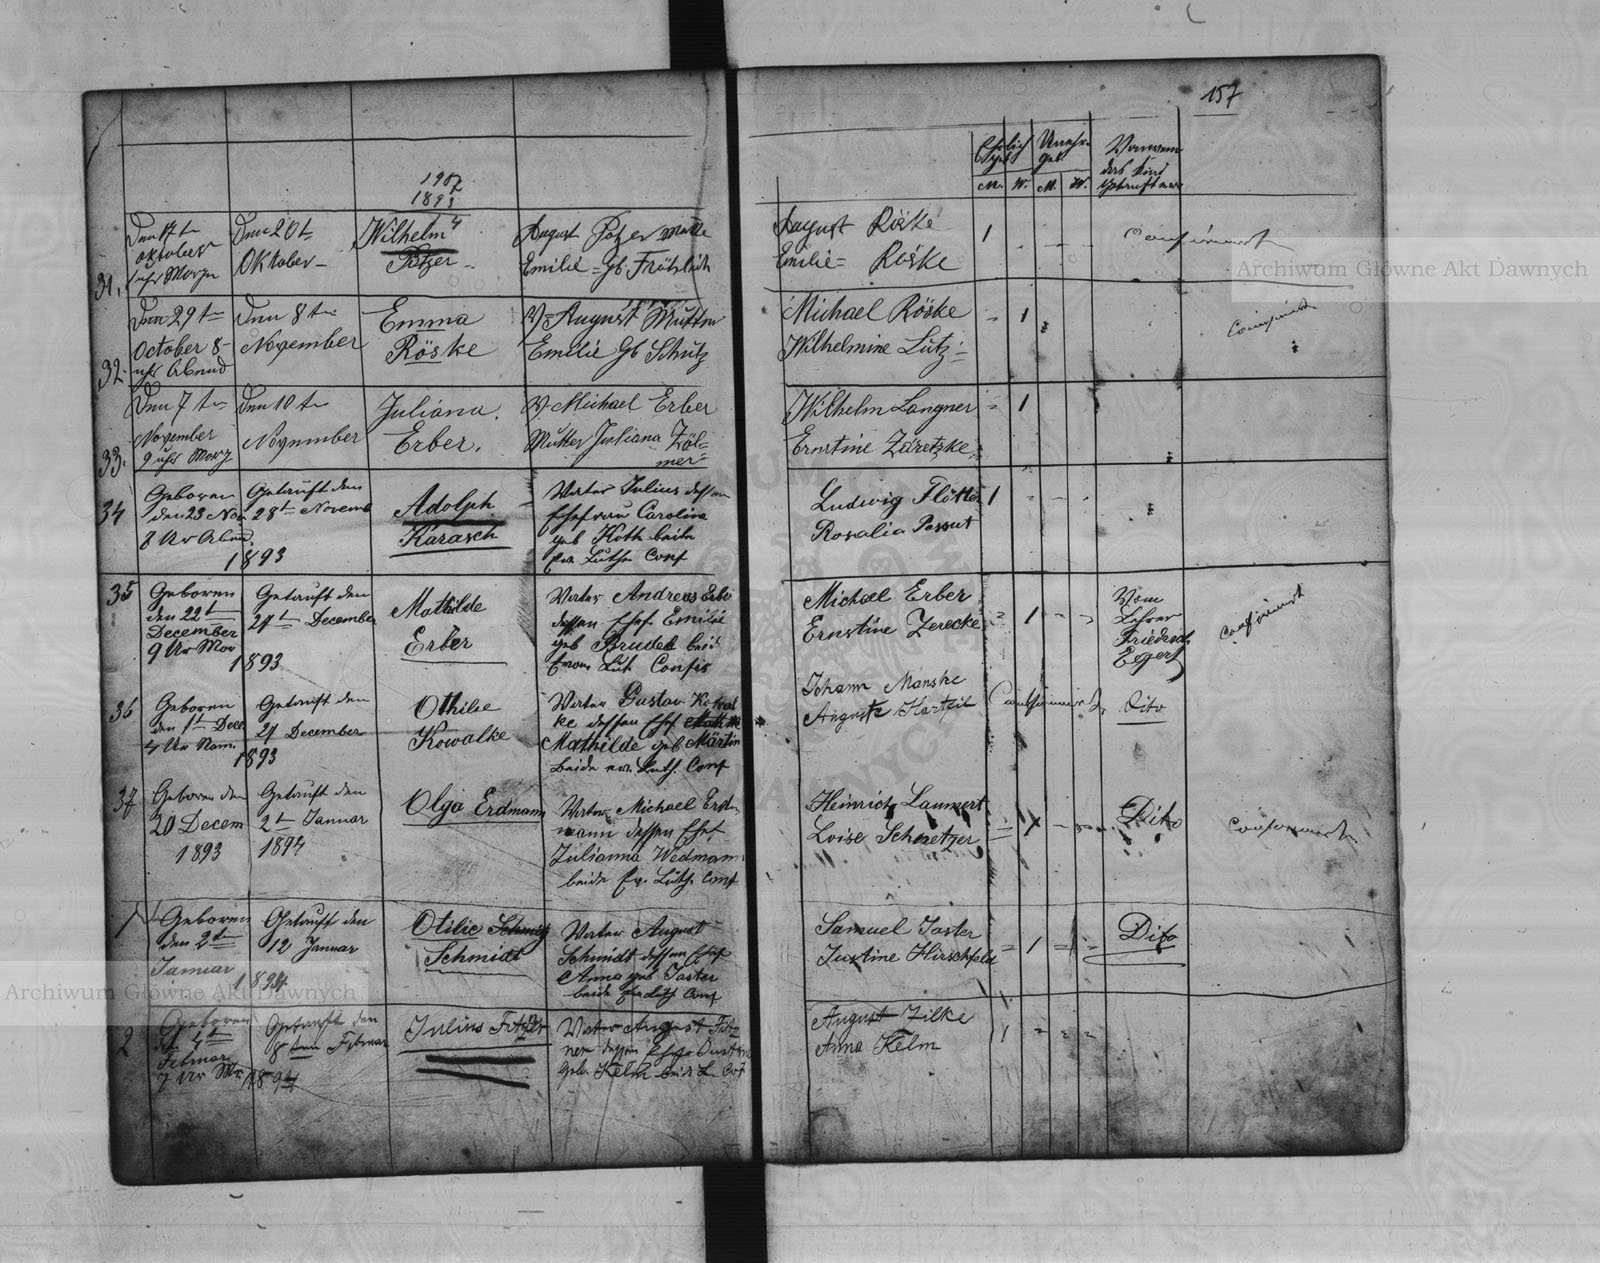 157
Ehelich
geb
Unehe.
geb
Von wem
das Kind
getauft war
M. W. M. W.
1907
1893
31.
Den 17 ten
Oktober
uhr Morgn
Den 20 t
Oktober
Wilhelm
Potzer
August Potzer Mutte
Emilie = Gb. Fröhlich
August Röske
Emilie = Röske
1
Confirmirt
32.
Den 29 ten
October 8
uhr Abend
Den 8 ten
November
Emma
Röske
V= August Mutter
Emilie Gb Schutz
Michael Röske
Wilhelmine Lutz
1
33.
Den 7 ten
November
9 uhr Morg
Den 10 ten
Novnmber
Juliana
Erber.
V. Michael Erber
Mutter Juliana Zöl=
mer
Wilhelm Langner
Ernstine Zäretzke
1
34
Geboren
den 23 Nov
8 Ur Abnd
1893
Getauft den
28 t Novemb
Adolph
Karasch
Vater Julius dessen
Ehefrau Carolina
geb Koth beide
Ew. Luth. Conf
Ludwig Flötter
Rosalia Possut
1
35
Geboren
den 22 t
December
9 Ur Mor
1893
Getauft den
27 t December
Mathilde
Erber
Vater Andreas Erbe
dessen Ehef Emilie
geb Bruder beid
Luth Confis
Michael Erber
Ernstine Zerecke
1
Vom
Lehrer
Friedrich
Egert
Confirmirt
36
Geboren
den 1 t Dec
4 Ur Nam.
1893
Getauft den
21 December
Othilie
Kowalke
Vater Gustav Kowal
ke dessen Ehef
Mathilde geb Märtin
beide ew. Luth. Conf
Johann Manske
August
Confirmirt
Dito
37
Geboren den
20 Decem
1893
Getauft den
2 t Januar
1894
Olga Erdmann
Vater Michael Erd=
mann dessen Ehef
Julianna Wedmann
beide Ev. Luth. Conf
Heinrich Laumert
Loise Schmetzer
1
Dito
Confirmirt
1
Geboren
den 2 t
Januar
1894
Getauft den
12 Januar
Otilie
Schmidt
Vater August
Schmidt dessen Ehef
Anna geb Jaster
beide Conf
Samuel Jaster
Justine Hirschfeld
1
Dito
2
Geboren
den 4 t
Februar
7 Ur Mr
1894
Getauft den
8 ten Februar
Julius
Vater August
ner dessen Ehefr
geb. Kelm beid L Conf
August Zilke
Anna Kelm
1
Archiwum Główne Akt Dawnych
Archiwum Główne Akt Dawnych